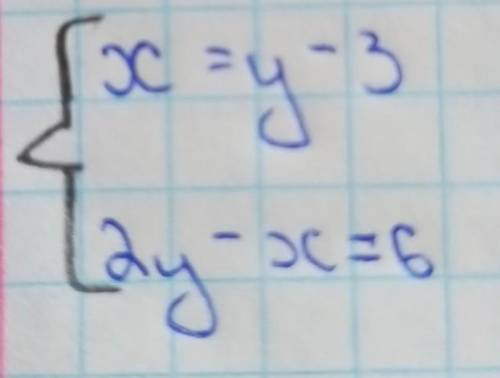 x = y - 3
2y - x = 6